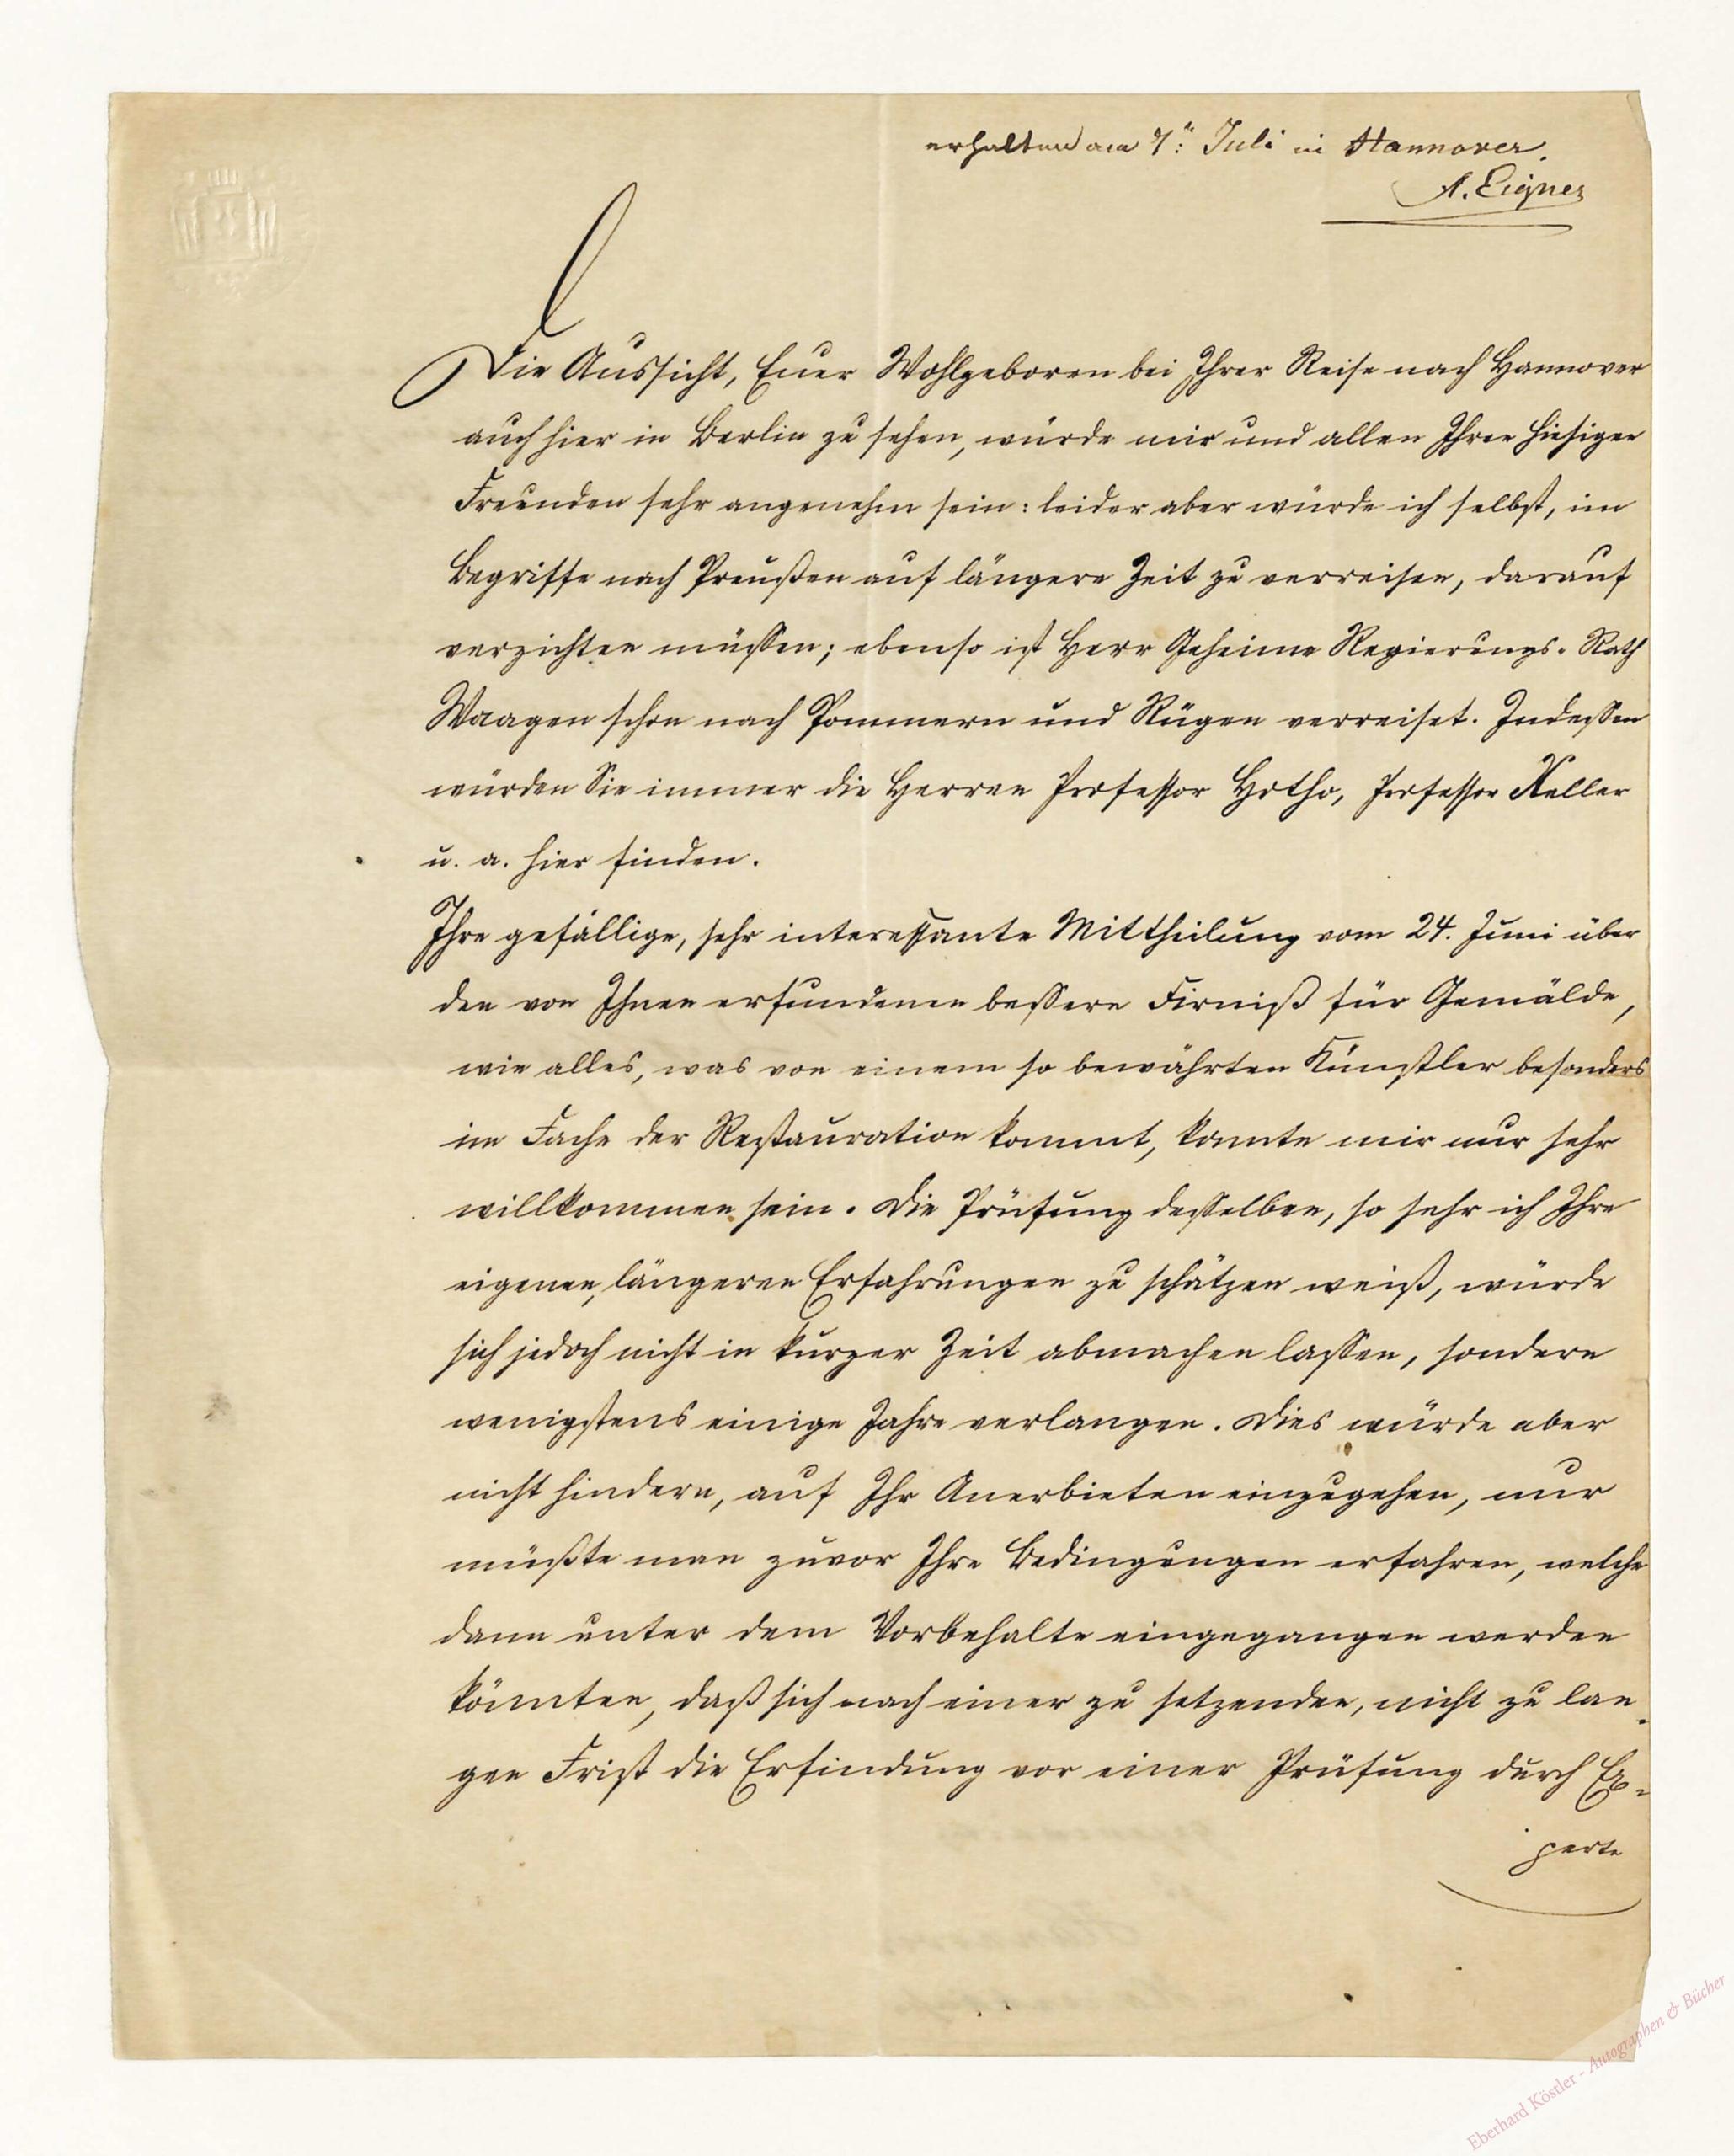 erhalten am 7: Juli in Hannover.
A. Eigner
Die Aussicht, Euer Wohlgeboren bei Ihrer Reise nach Hannover
auch hier in Berlin zu sehen, würde mir und allen Ihren hiesigen
Freunden sehr angenehm sein: leider aber würde ich selbst, im
Begriffe nach Preußen auf längere Zeit zu verreisen, darauf
verzichten müssen; ebenso ist Herr Geheime Regierungs-Rath
Waagen schon nach Pommern und Rügen verreiset. Indessen
würden Sie immer die Herren Professor Hotho, Professor Xeller
u. a. hier finden.
Ihre gefällige, sehr interessante Mittheilung vom 24. Juni über
den von Ihnen erfundenen bessern Firniß für Gemälde,
wie alles, was von einem so bewährten Künstler besonders
im Fache der Restauration kommt, konnte mir nur sehr
willkommen sein. Die Prüfung desselben, so sehr ich Ihre
eigenen, längeren Erfahrungen zu schätzen weiß, würde
sich jedoch nicht in kurzer Zeit abmachen lassen, sondern
wenigstens einige Jahre verlangen. Dies würde aber
nicht hindern, auf Ihr Anerbieten einzugehen, nur
müßte man zuvor Ihre Bedingungen erfahren, welche
dann unter dem Vorbehalte eingegangen werden
könnten, daß sich nach einer zu setzenden, nicht zu lan-
gen Frist die Erfindung vor einer Prüfung durch Ex-
perte
Eberhard Köstler - Autographen & Bücher